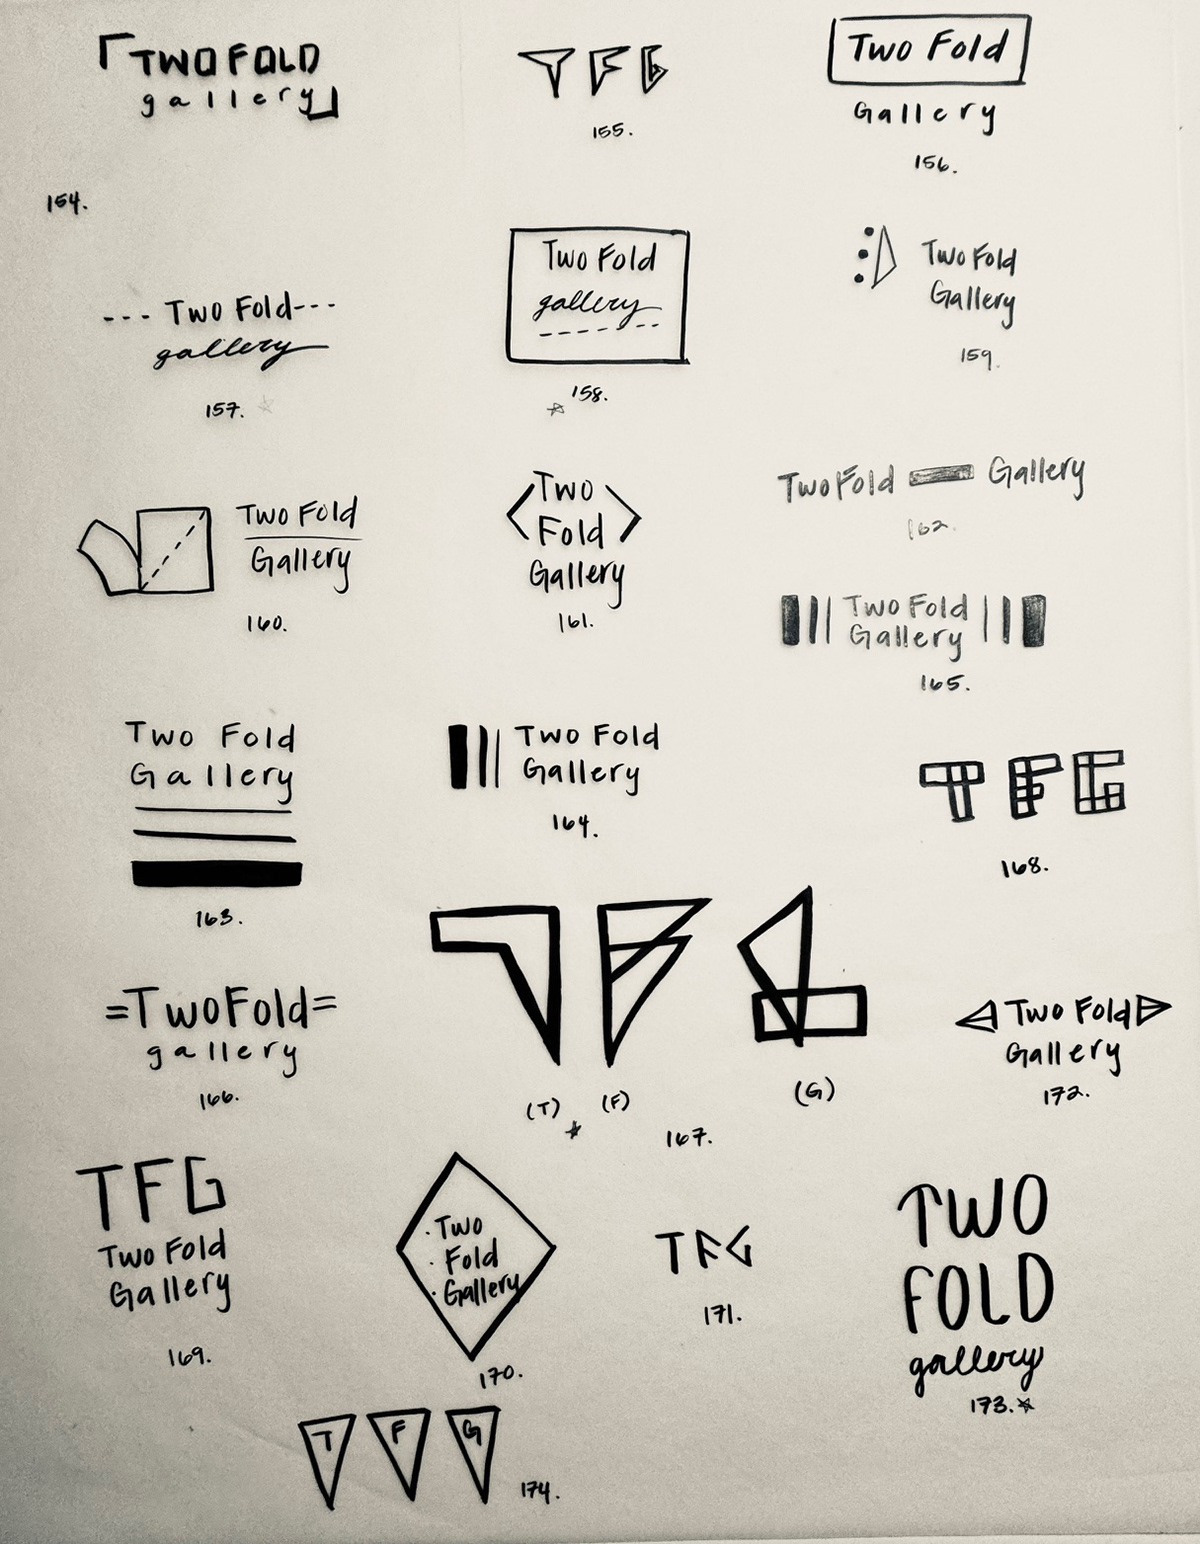 TWO FOLD
gallery
154.
TFG
155.
Two Fold
Gallery
156.
Two Fold
gallery
157.
Two Fold
gallery
158.
Two Fold
Gallery
159.
Two Fold
Gallery
160.
Two
Fold
Gallery
161.
Two Fold Gallery
162.
Two Fold
Gallery
165.
Two Fold
Gallery
163.
Two Fold
Gallery
164.
TFG
168.
=Two Fold=
gallery
166.
TFG
(T) (F) (G)
167.
Two Fold
Gallery
172.
TFG
Two Fold
Gallery
169.
Two
Fold
Gallery
170.
TFG
171.
TWO
FOLD
gallery
173.
T F G
174.